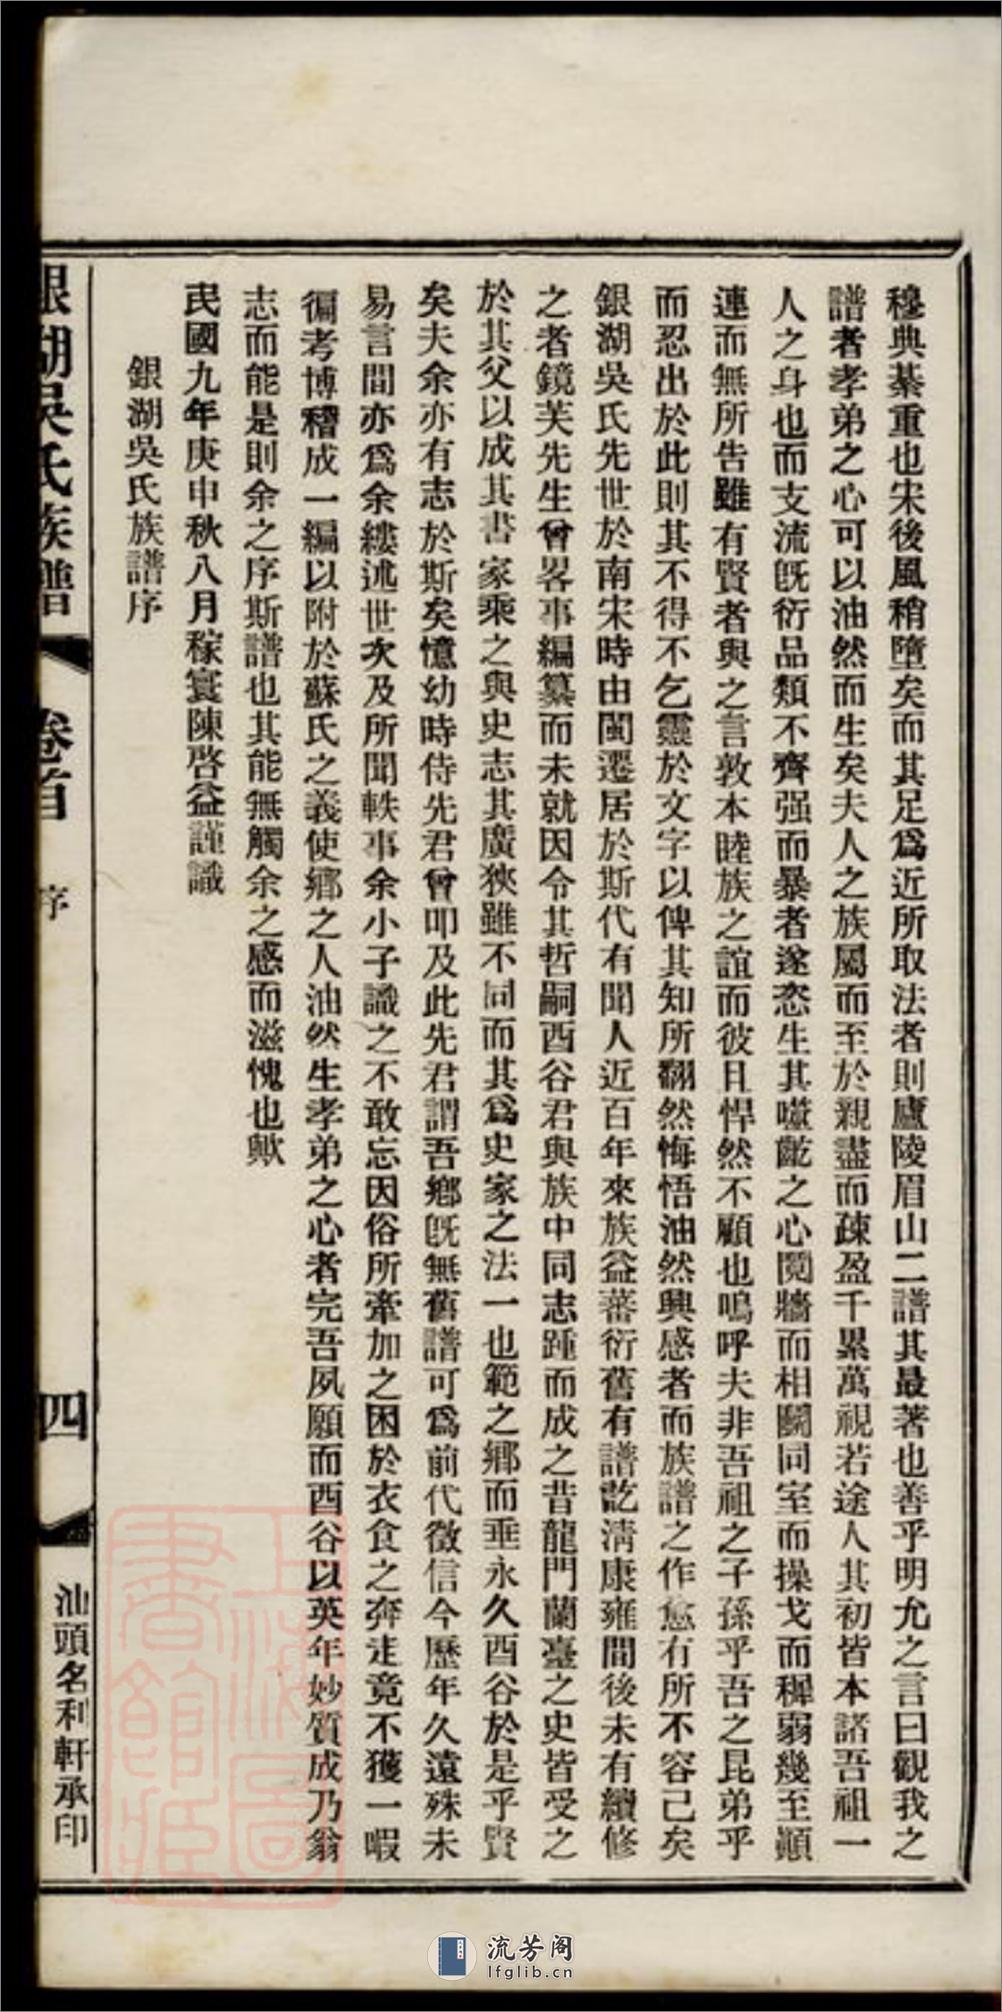 穆典綦重也宋後風稍墮矣而其足爲近所取法者則廬陵眉山二譜其最著也善乎明允之言曰觀我之
譜者孝弟之心可以油然而生矣夫人之族屬而至於親盡而疎盈千累萬視若途人其初皆本諸吾祖一
人之身也而支流旣衍品類不齊强而暴者遂恣生其噬齕之心鬩牆而相鬭同室而操戈而穉弱幾至顚
連而無所告雖有賢者與之言敦本睦族之誼而彼且悍然不顧也嗚呼夫非吾祖之子孫乎吾之昆弟乎
而忍出於此則其不得不乞靈於文字以俾其知所翻然悔悟油然興感者而族譜之作愈有所不容已矣
銀湖吳氏先世於南宋時由閩遷居於斯代有聞人近百年來族益蕃衍舊有譜訖淸康雍間後未有續修
之者鏡芙先生曾畧事編纂而未就因令其哲嗣酉谷君與族中同志踵而成之昔龍門蘭臺之史皆受之
於其父以成其書家乘之與史志其廣狹雖不同而其爲史家之法一也範之鄕而垂永久酉谷於是乎賢
矣夫余亦有志於斯矣憶幼時侍先君曾叩及此先君謂吾鄕旣無舊譜可爲前代徵信今歷年久遠殊未
易言間亦爲余縷述世次及所聞軼事余小子識之不敢忘因俗所牽加之困於衣食之奔走竟不獲一暇
徧考博稽成一編以附於蘇氏之義使鄕之人油然生孝弟之心者完吾夙願而酉谷以英年妙質成乃翁
志而能是則余之序斯譜也其能無觸余之感而滋愧也歟
民國九年庚申秋八月稼寰陳啓益謹識
銀湖吳氏族譜序
銀湖吳氏族譜 卷首 序 四 汕頭名利軒承印
上海圖書館藏
流芳阁
lfglib.cn